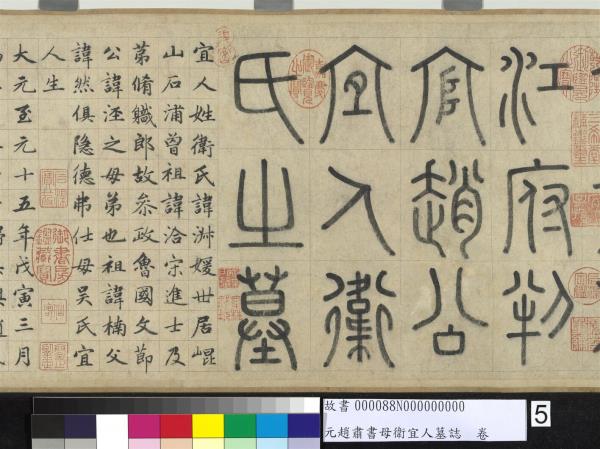 江府判
官趙公
宜人衛
氏之墓
宜人姓衛氏諱淑媛世居崐
山石浦曾祖諱洽宋進士及
苐脩軄郎故叅政魯國文莭
公諱涇之母弟也祖諱楠父
諱然俱隐德弗仕母吳氏宜
人生
大元至元十五年戊寅三月
故書 000088N000000000
元趙肅書母衛宜人墓誌 卷
5